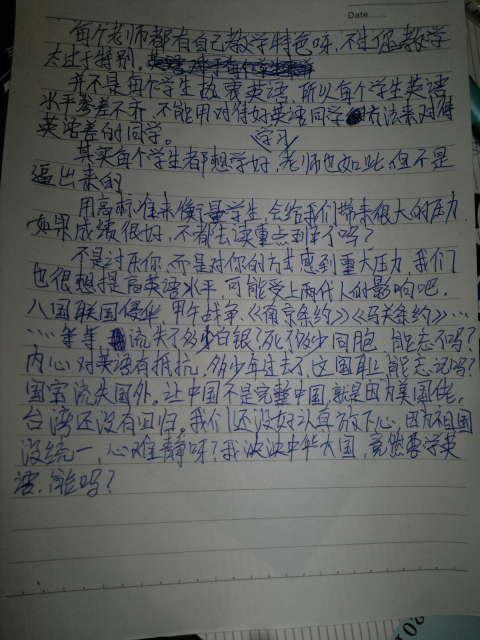 Date
每个老师都有自己教学特色呀,不过你教学
太过于特别。
并不是每个学生都爱英语,所以每个学生英语
水平参差不齐,不能用对待好英语同学 方法来对待
英语差的同学。 学习
其实每个学生都想学好,老师也如此,但不是
逼出来的
用高标准来衡量学生,会给我们带来很大的压力,
如果成绩很好,不都去读重点班了吗?
不是讨厌你,而是对你的方式感到重大压力,我们
也很想提高英语水平,可能受上两代人的影响吧,
八国联国侵华 甲午战争,《南京条约》《马关条约》……
……等等 流失了多少白银?死了多少同胞 能忘了吗?
内心对英语有抵抗,多少年过去了,这国耻能忘记吗?
国宝流失国外,让中国不是完整中国,就是因为美国佬,
台湾还没有回归,我们还没好认真放下心,因为祖国
没统一 心难静呀?我泱泱中华大国,竟然要学英
语,能吗?